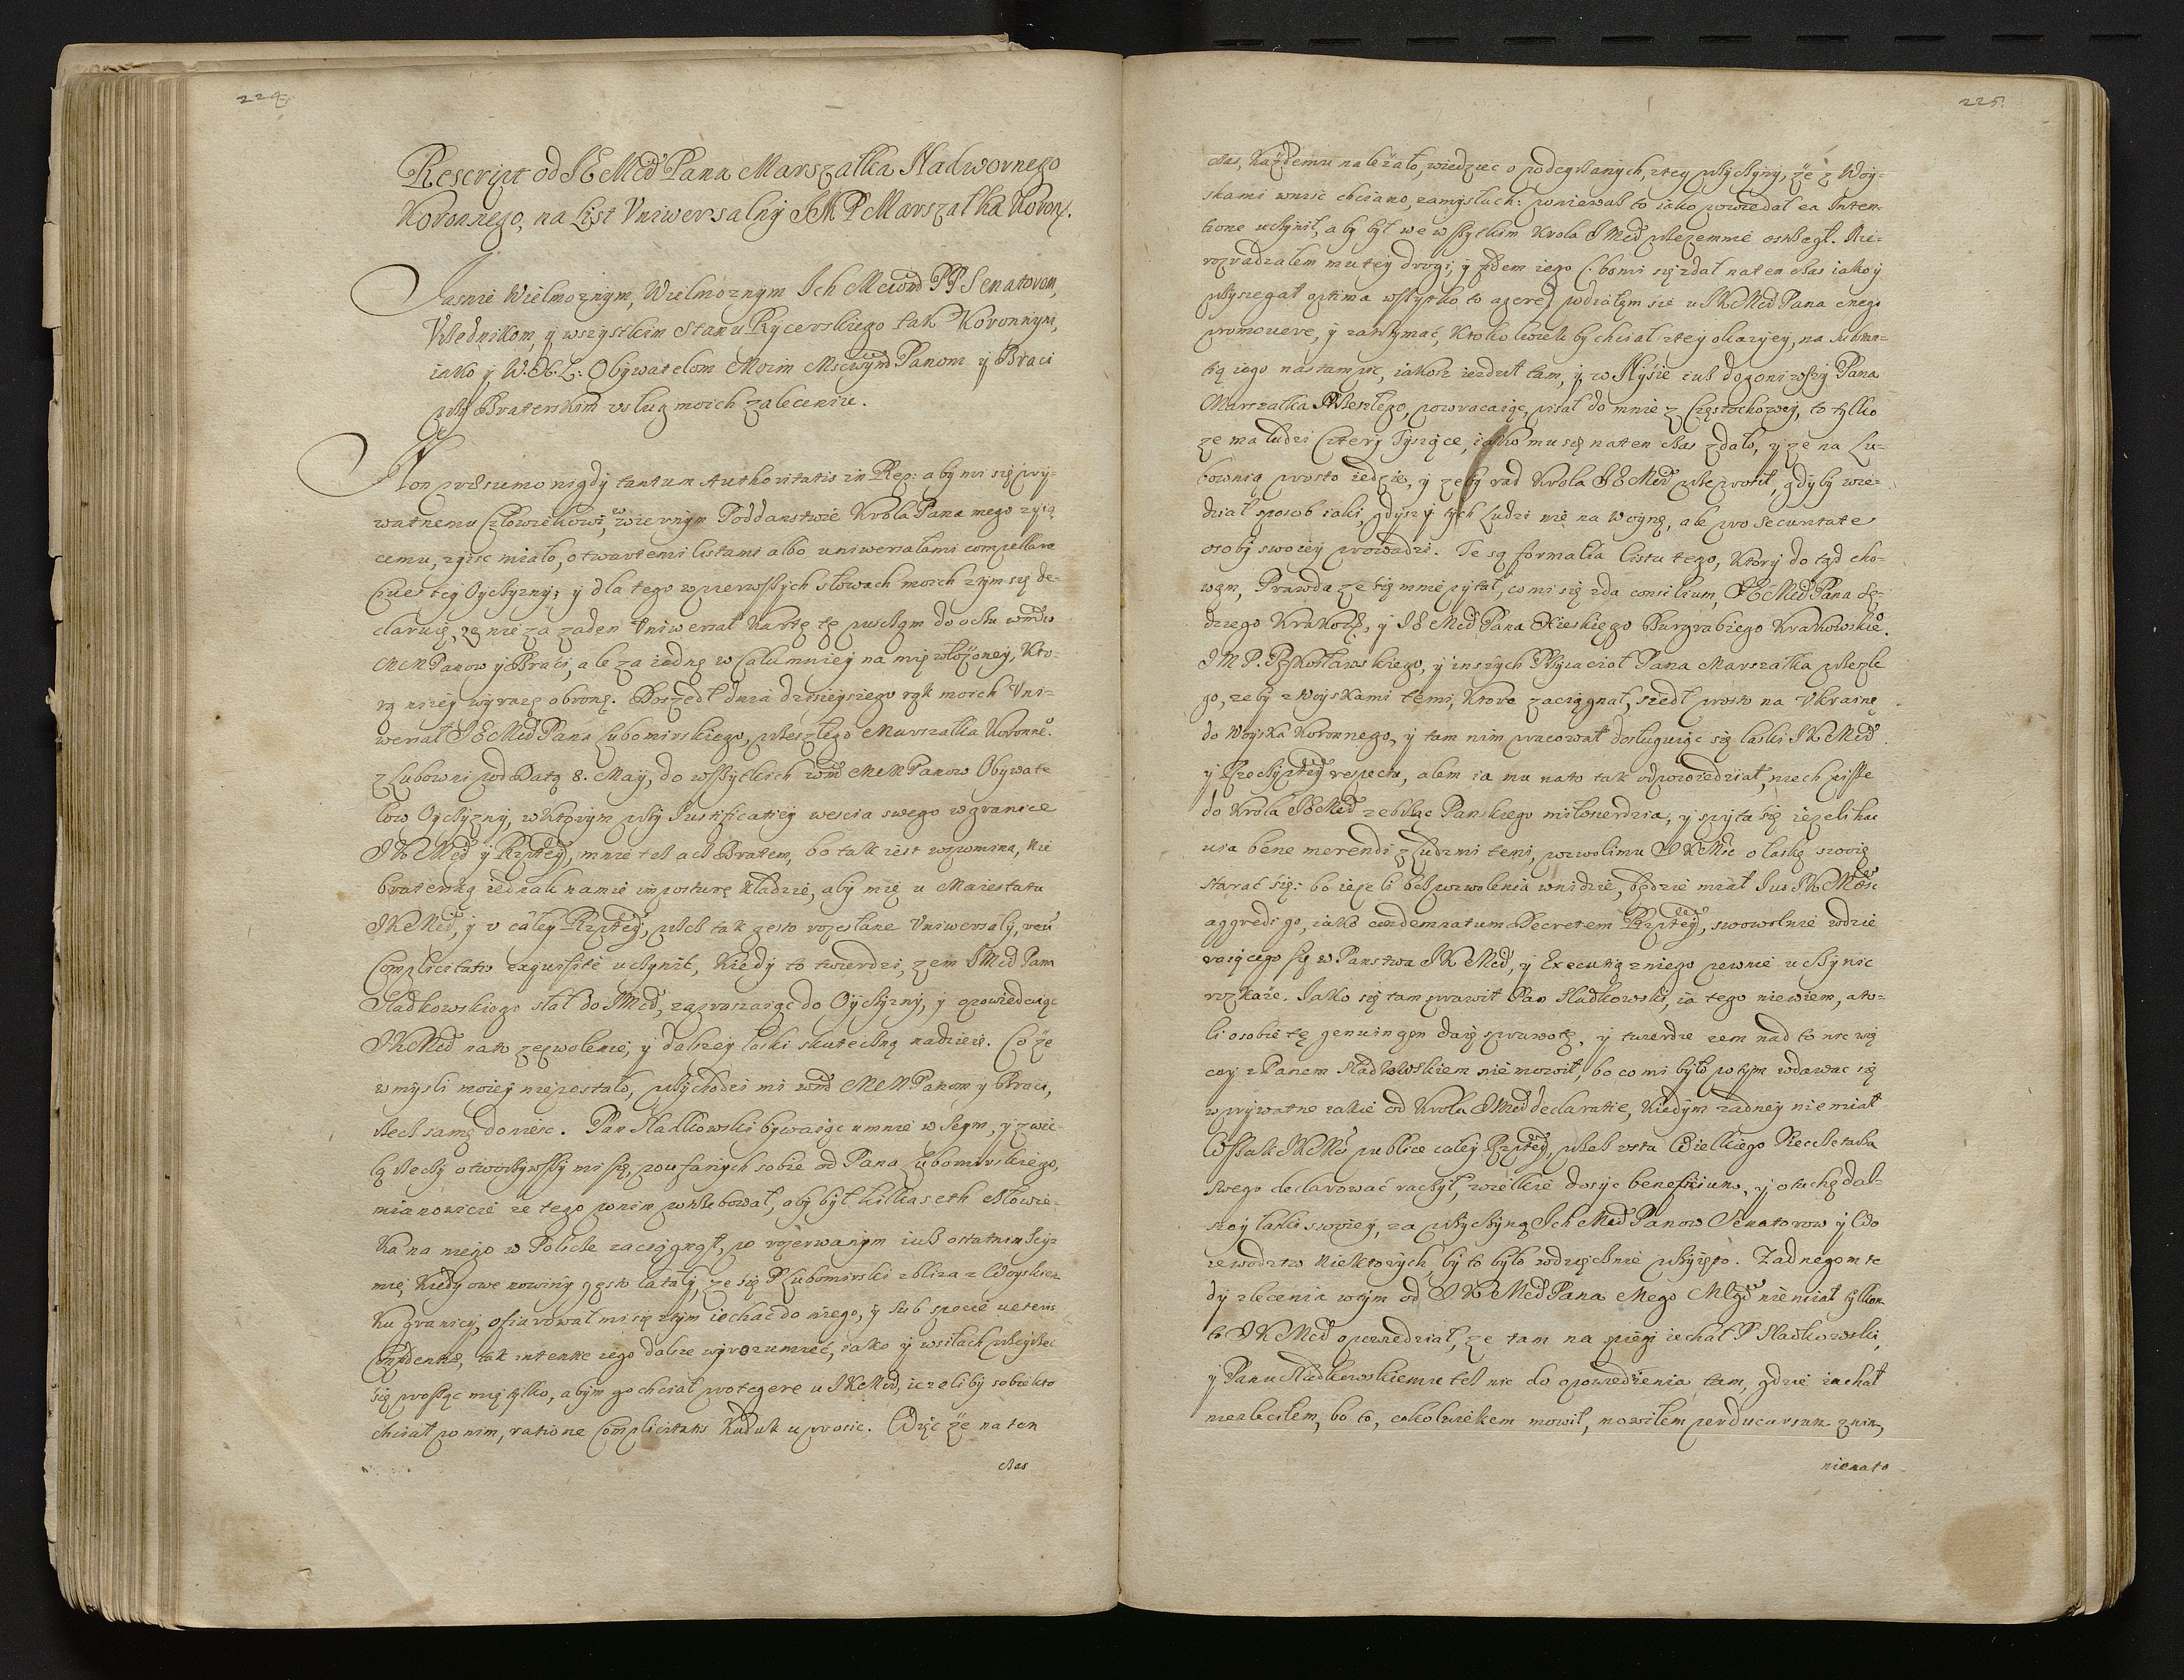 224.
Rescript od JE Mći Pana Marszałka Nadwornego
Koronnego, na List Vniwersalny JM P Marszałka Koron.
Jasnie Wielmoznym, Wielmoznym Ich Mciom PP Senatorom,
Vrzędnikom, y wszystkim Stanu Rycerskiego tak Koronnym,
iako y W. X. L: Obywatelom Moim Msciwym Panom y Braci
przy Braterskim usług moich zaleceniu.
Non præsumo nigdy tantum Authoritatis in Rep: aby mi się pry-
watnemu Człowiekowi, w wiernym Poddanstwie Krola Pana mego zyią
cemu, zgisc miało, otwartemi listami albo uniwersałami compellare
Cives tey Oyczyzny; y dla tego w pierwszych słowach moich z tym się de-
claruię, ze nie za zaden Vniwersał Kartę tę puszczam do oczu wmciow
MM Panow y Braci, ale za iedną w Calumniey na mię włożoney, Kto-
rą nizey wyrazę obronę. Doszedł dnia dzisieyszego rąk moich Vni-
wersał JE Mći Pana Lubomirskiego, przeszłego Marszałka Koronneo.
z Lubowni pod Datą 8. Maij, do wszytkich wmci MM Panow Obywate
low Oyczyzny, w ktorym przy Iustificatiey wescia swego w granice
JKMći y Rzptey, mnie tesz acz Bratem, bo tak iest wspomina, nie
braterską iednak na mie imposturę kładzie, aby mię u Maiestatu
JKMći, y v całey Rzptey, przez tak gęsto rozesłane Vniwersały, reū
Complicitatis exquisite uczynic, Kiedy to twierdzi, zem JMći Pana
Sladkowskiego słał do JMći, zapraszaiąc do Oyczyzny, y opowiedaiąc
JKMći na to zezwolenie, y dalszey łaski skuteczną nadzieię. Co że
w mysli moiey niepostało, przychodzi mi wmci MM Panom y Braci,
rzecz samą doniesc. Pan Sladkowski bywaiąc u mnie w Seym, y z wie-
lą rzeczy otworzywszy mi się, poufanych sobie od Pana Lubomirskiego,
mianowicie ze tego po nim potrzebował, aby był kilkaseth człowie-
ka na niego w Polszcze zaciągnął, po rozerwanym iusz ostatnim Sey-
mie, Kiedy owe nowiny gęsto latały, ze się P Lubomirski zbliza z Woyskiem
Ku granicy, ofiarował mi się z tym iechać do niego, y sub specie veteris
confidentiæ, tak intentie iego dalsze wyrozumieć, iako y w siłach przeyrzec
się prosząc mię tylko, abym go chciał protegere u JKMći, iezeliby sobie kto
chciał po nim, ratione Complicitatis Kaduk uprosic. Więc że na ten
czas
225.
czas, każdemu należało, wiedziec o podeyrzanych, z tey przyczyny, że z Woy-
skami wniśc chciano, zamysłach: ponieważ to iako powiedał ea Inten-
tione uczynił, aby był we wszytkim Krola JMći przezemnie ostrzegł. Nie-
rozradzałem mu tey drogi, y zdem iego (: bo mi się zdał na ten czas iako y
przysięgał optima wszytko to agere) podiąłym się u JKMći Pana mego
promovere, y zatrzymać, Ktokolwiek by chciał z tey okazyey, na substan-
tią iego nastąmpic, iakosz iezdził tam, y w Nysie iusz dogoniwszy Pana
Marszałka Przeszłego, powracaiąc, pisał do mnie z Częstochowy, to tylko
ze ma ludzi Cztery Tysiące, iako mu się na ten czas zdało, y ze na Lu-
bownią prosto iedzie, y zeby rad Krola JE Mći przeprosił, gdyby wie-
dział sposob iaki, gdysz y tych ludzi nie na Woynę, ale pro Securitate
osoby swoiey prowadzi. Te są formalia listu tego, Ktory do tąd cho-
wam, Prawda ze się mnie pytał, co mi się zda consilium, JE Mći Pana Sę-
dziego Krakows., y JE Mći Pana Burgrabiego Krakowskieo.
JM P. Przkosławskiego, y inszych Przyiacioł Pana Marszałka przeszłe
go, zeby z woyskami temi, Ktore zaciągnął, szedł prosto na Vkrainę
do Woyska Koronnego, y tam nim pracował dosługuiąc się łaski JKMći
y Rzeczyptey respectu, alem ia mu na to tak odpowiedział, niech pisze
do Krola JE Mći zebrząc Panskiego miłosierdzia, y spyta się iezeli hac
via bene merendi z ludzmi temi, pozwoli mu JKMść o łaskę swoię
starać się: bo iezeli bez pozwolenia wnidzie, będzie miał Ius JKMość
aggredi go, iako condemnatum Decretem Rzptey, swowolnie wdzie
raiącego się w Panstwa JKMći, y Executią z niego pewnie uczynic
rozkaże. Iako się tam sprawił Pan Sladkowski, ia tego niewiem, a to-
li o sobie tę genuinam daię sprawotę, y twierdze zem nad to nic wię
cey z Panem Sladkowskiem nie mowił, bo co mi było po tym wdawac się
w prywatne iakie od Krola JMći declaratie, Kiedym zadney nie miał
Wszak JKMć publice całey Rzptey, przez usta Wielkiego Pieczetarza
swego declarować raczył, wielkie dosyc beneficium, y otuchę dal-
szey łaski swoiey, za przyczyną Ich Mći Panow Senatorow y Wo
iewodztw niektorych, by to było wdzięcznie przyięto. Zadnegom te
dy zlecenia w tym od JKMći Pana Mego Młgo nie miał tylkom
to JKMći opowiedział, ze tam na spiegi iechał P Sladkowski,
y Panu Sladkowskiemu tesz nic do opowiedzienia tam, gdzie iachał
niezleciłem, bo to, cokolwiekem mowił, mowiłem per discursum z nim,
nie na to